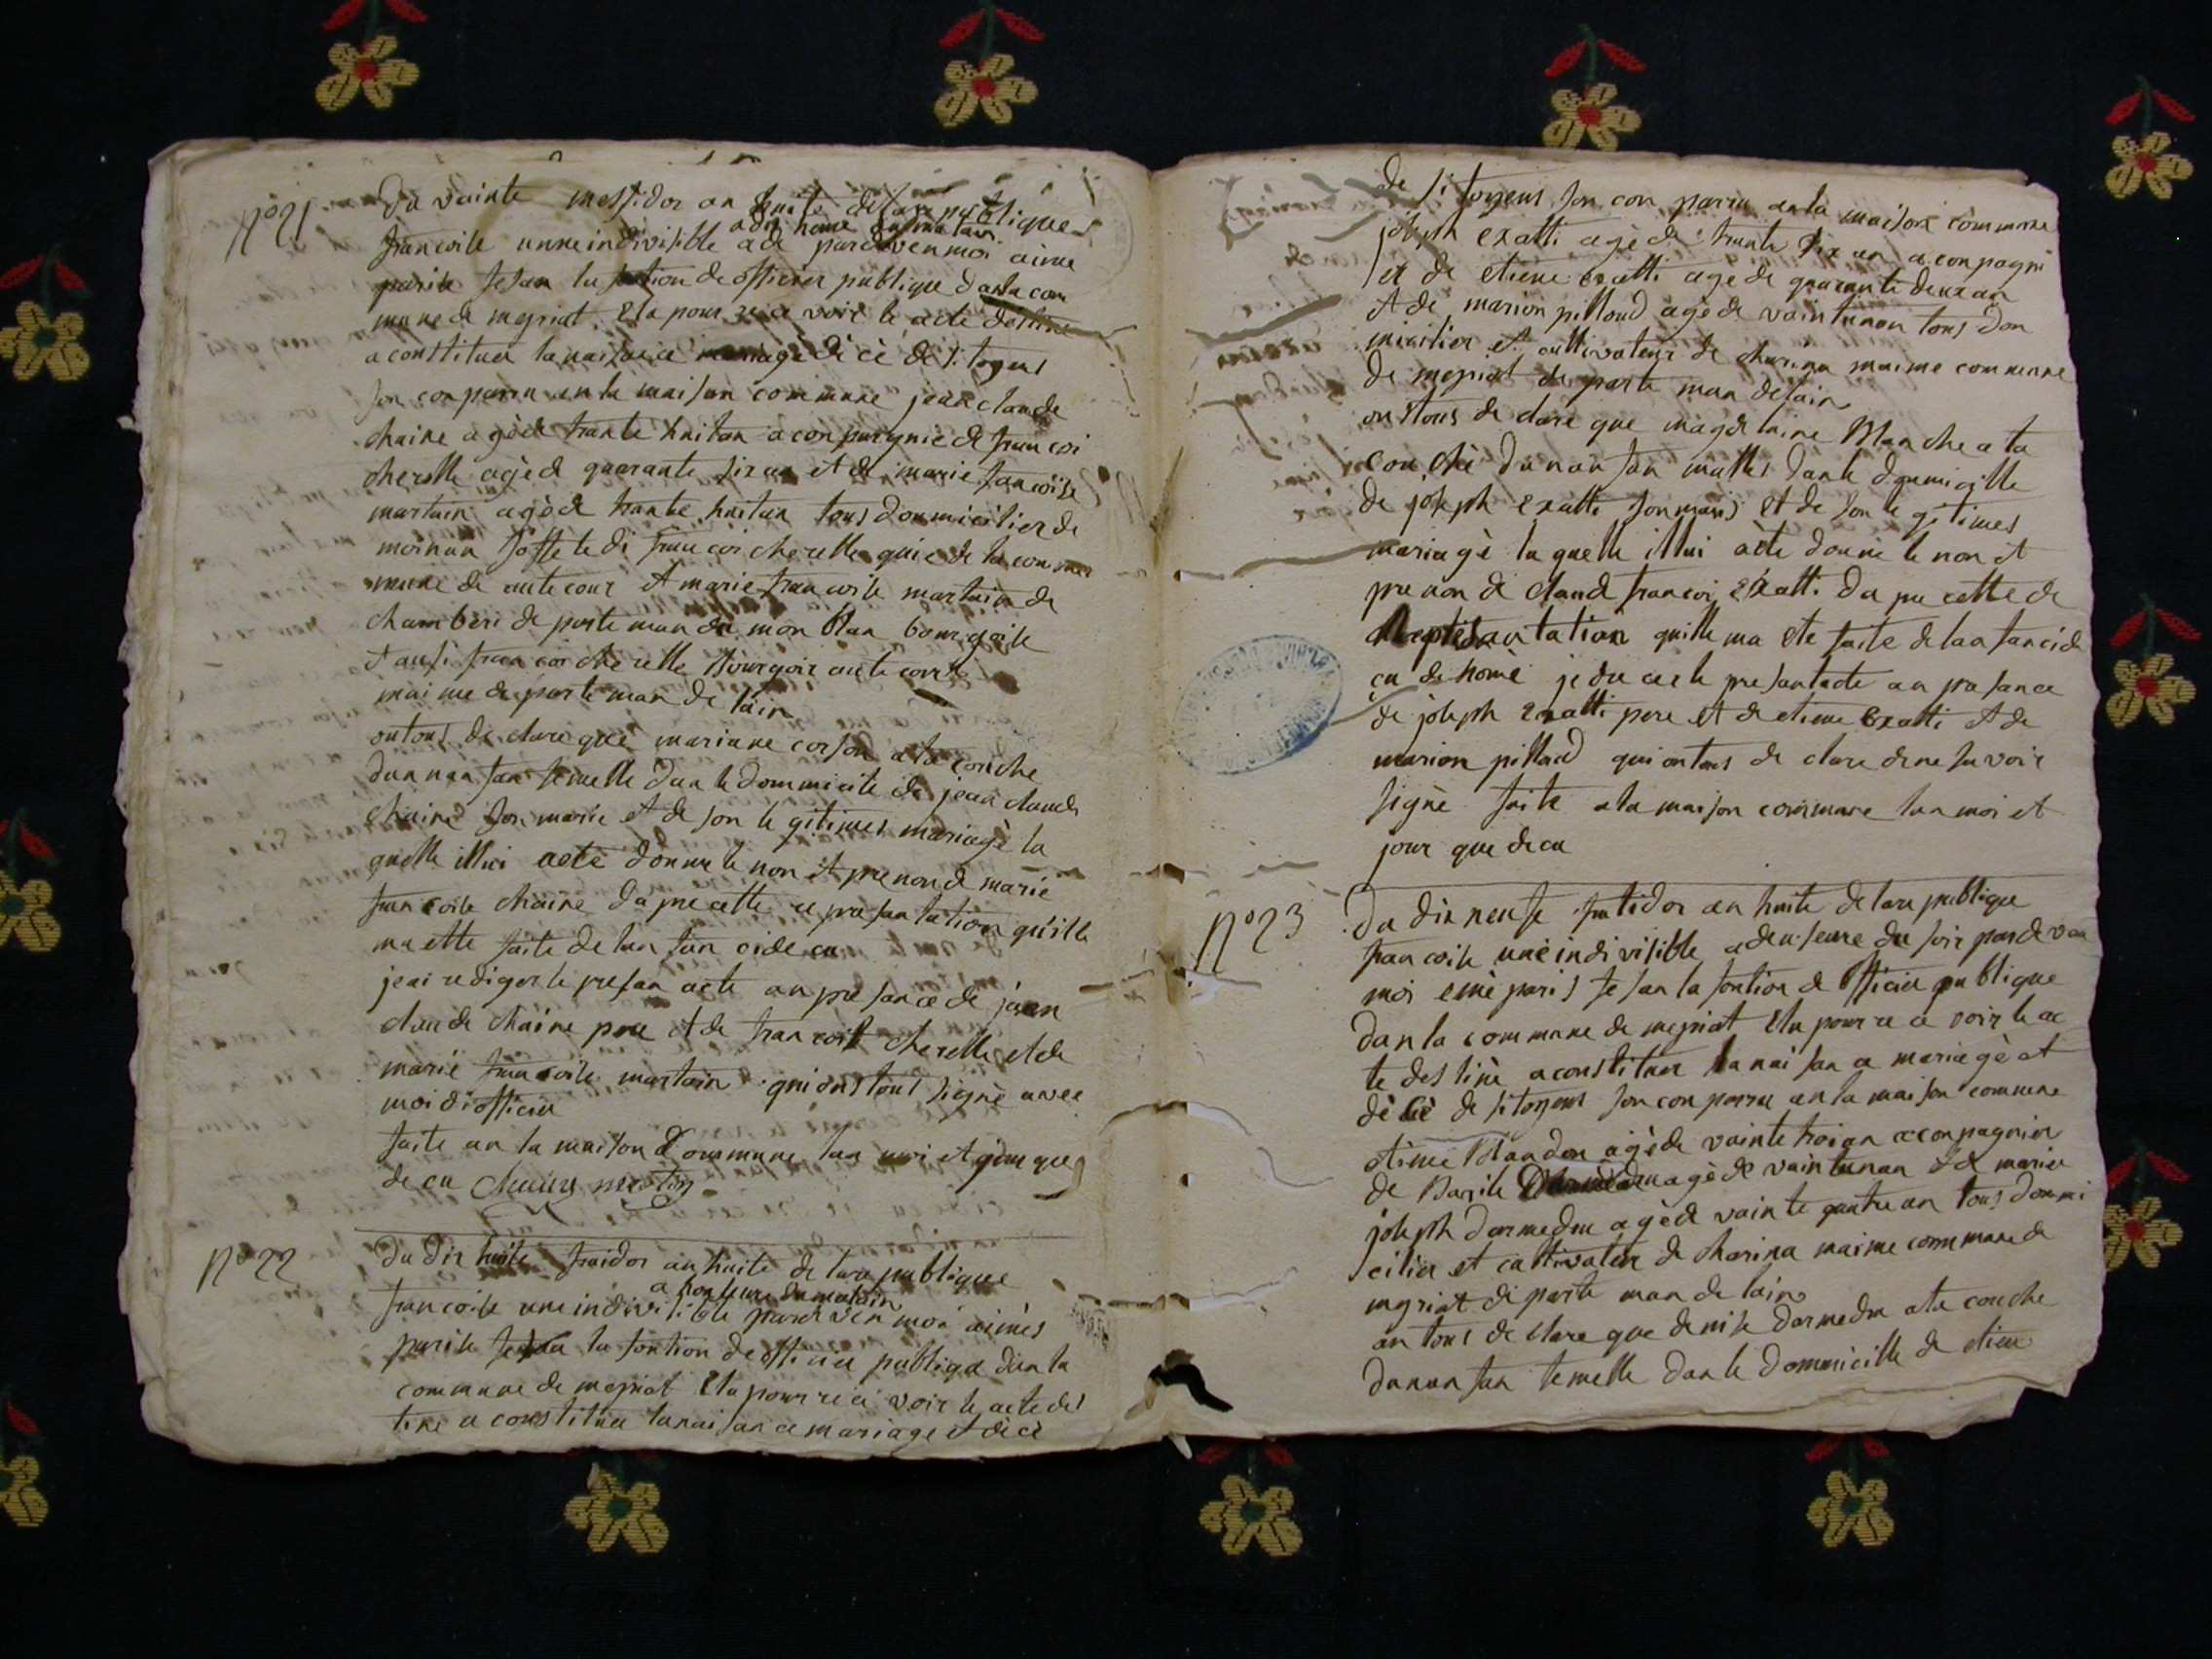 nº 21
du vainte messidor an huite de la re publique
a dix heure du matain
francoise unne indivisible a de pardeven moi aime
parise fesan la fontion de officier publique dan la com
mune de meyriat Elu pour re ce voir le acte destine
a constituer la naisance mariage dècè de sitoyens
son conparu an la maison commune jean claude
chaine agède trante huitan a conpagnie de francoi
cherelle agède quarante sixan et de marie francoise
martain agède trante huitan tous dommicilier de
francoi cherelle qui e de la com
mune de autecour et marie francoise martain de
chamberi de parte man du mon blan bourgoise
et ausi francoi cherelle Bourgois aute cour
maime de parte man de l'ain
on tous de clare que mariane corson a la couche
dun nan fan femelle dan le dommicile de jean claude
chaine son marie et de son le gitimes mariagè la
quelle illui aete donne le non et prenon de marie
francoise chaine da pre cette re presantation qu'ille
ma ette faite de lan fan cide cu
jeai rediger le presan acte an presance de jean
claude chaine pere et de francoise cherelle et de
marie francoise martain qui ons tous signè avec
moi di officier
faite an la maison Commune lan moi et jour que
de cu Chaine
nº 22
du dix huite fruidor an huite de lare publique
a honseure du matain
francoise une indivisible parde ven moi aimès
parise fesan la fontion de officier publique dan la
commune de meyriat Elu pour re ce voir le acte des
tine a constituer la naisan ce mariage et dècè
de sitoyens son con paru an la maison commune
joseph exatti agède trante six an a conpagni
er de etiene Exatti age de quarante deux an
et de marion pilloud agède vaintunan tous dom
micilier et cultivateur de charina maime commune
de meyriat de parte man de lain
on tous de clare que magdelaine Manche a la
couchè du nan fan malles dan le dommicille
de joseph exatti son maris et de son le gitimes
mariagè la quelle illui aète donne le non et
pre non de claude francoi exatti da pre cette de
presantation quille ma ete faite de lan fan cide
cu de nomè je du cer le presantacte an presance
de joseph exatti pere et de etiene Exatti et de
marion pilloud qui on tous de clare de ne savoir
signè faite a la maison commune lan moi et
jour que de cu
nº 23
du dix neufe frutidor an huite de lare publique
francoise une indivisible a deuseure du soir pardevan
moi emè paris fesan la fontion de officier publique
dan la commune de meyriat Elu pour re ce voir le ac
te destinè a constituer la naisan ce mariagè et
dècè de sitoyens son conparru an la maison commune
etiene Blandon agède vainte troi an aconpagnier
de Basile agède vaintunan et de marier
joseph darmedru agède vainte quatre an tous dommi
cilier et cultivateur de charina maime commune de
meyriat de parte man de lain
on tous de clare que denise darmedru a la couche
dunan fan femelle dan le dommicille de etiene